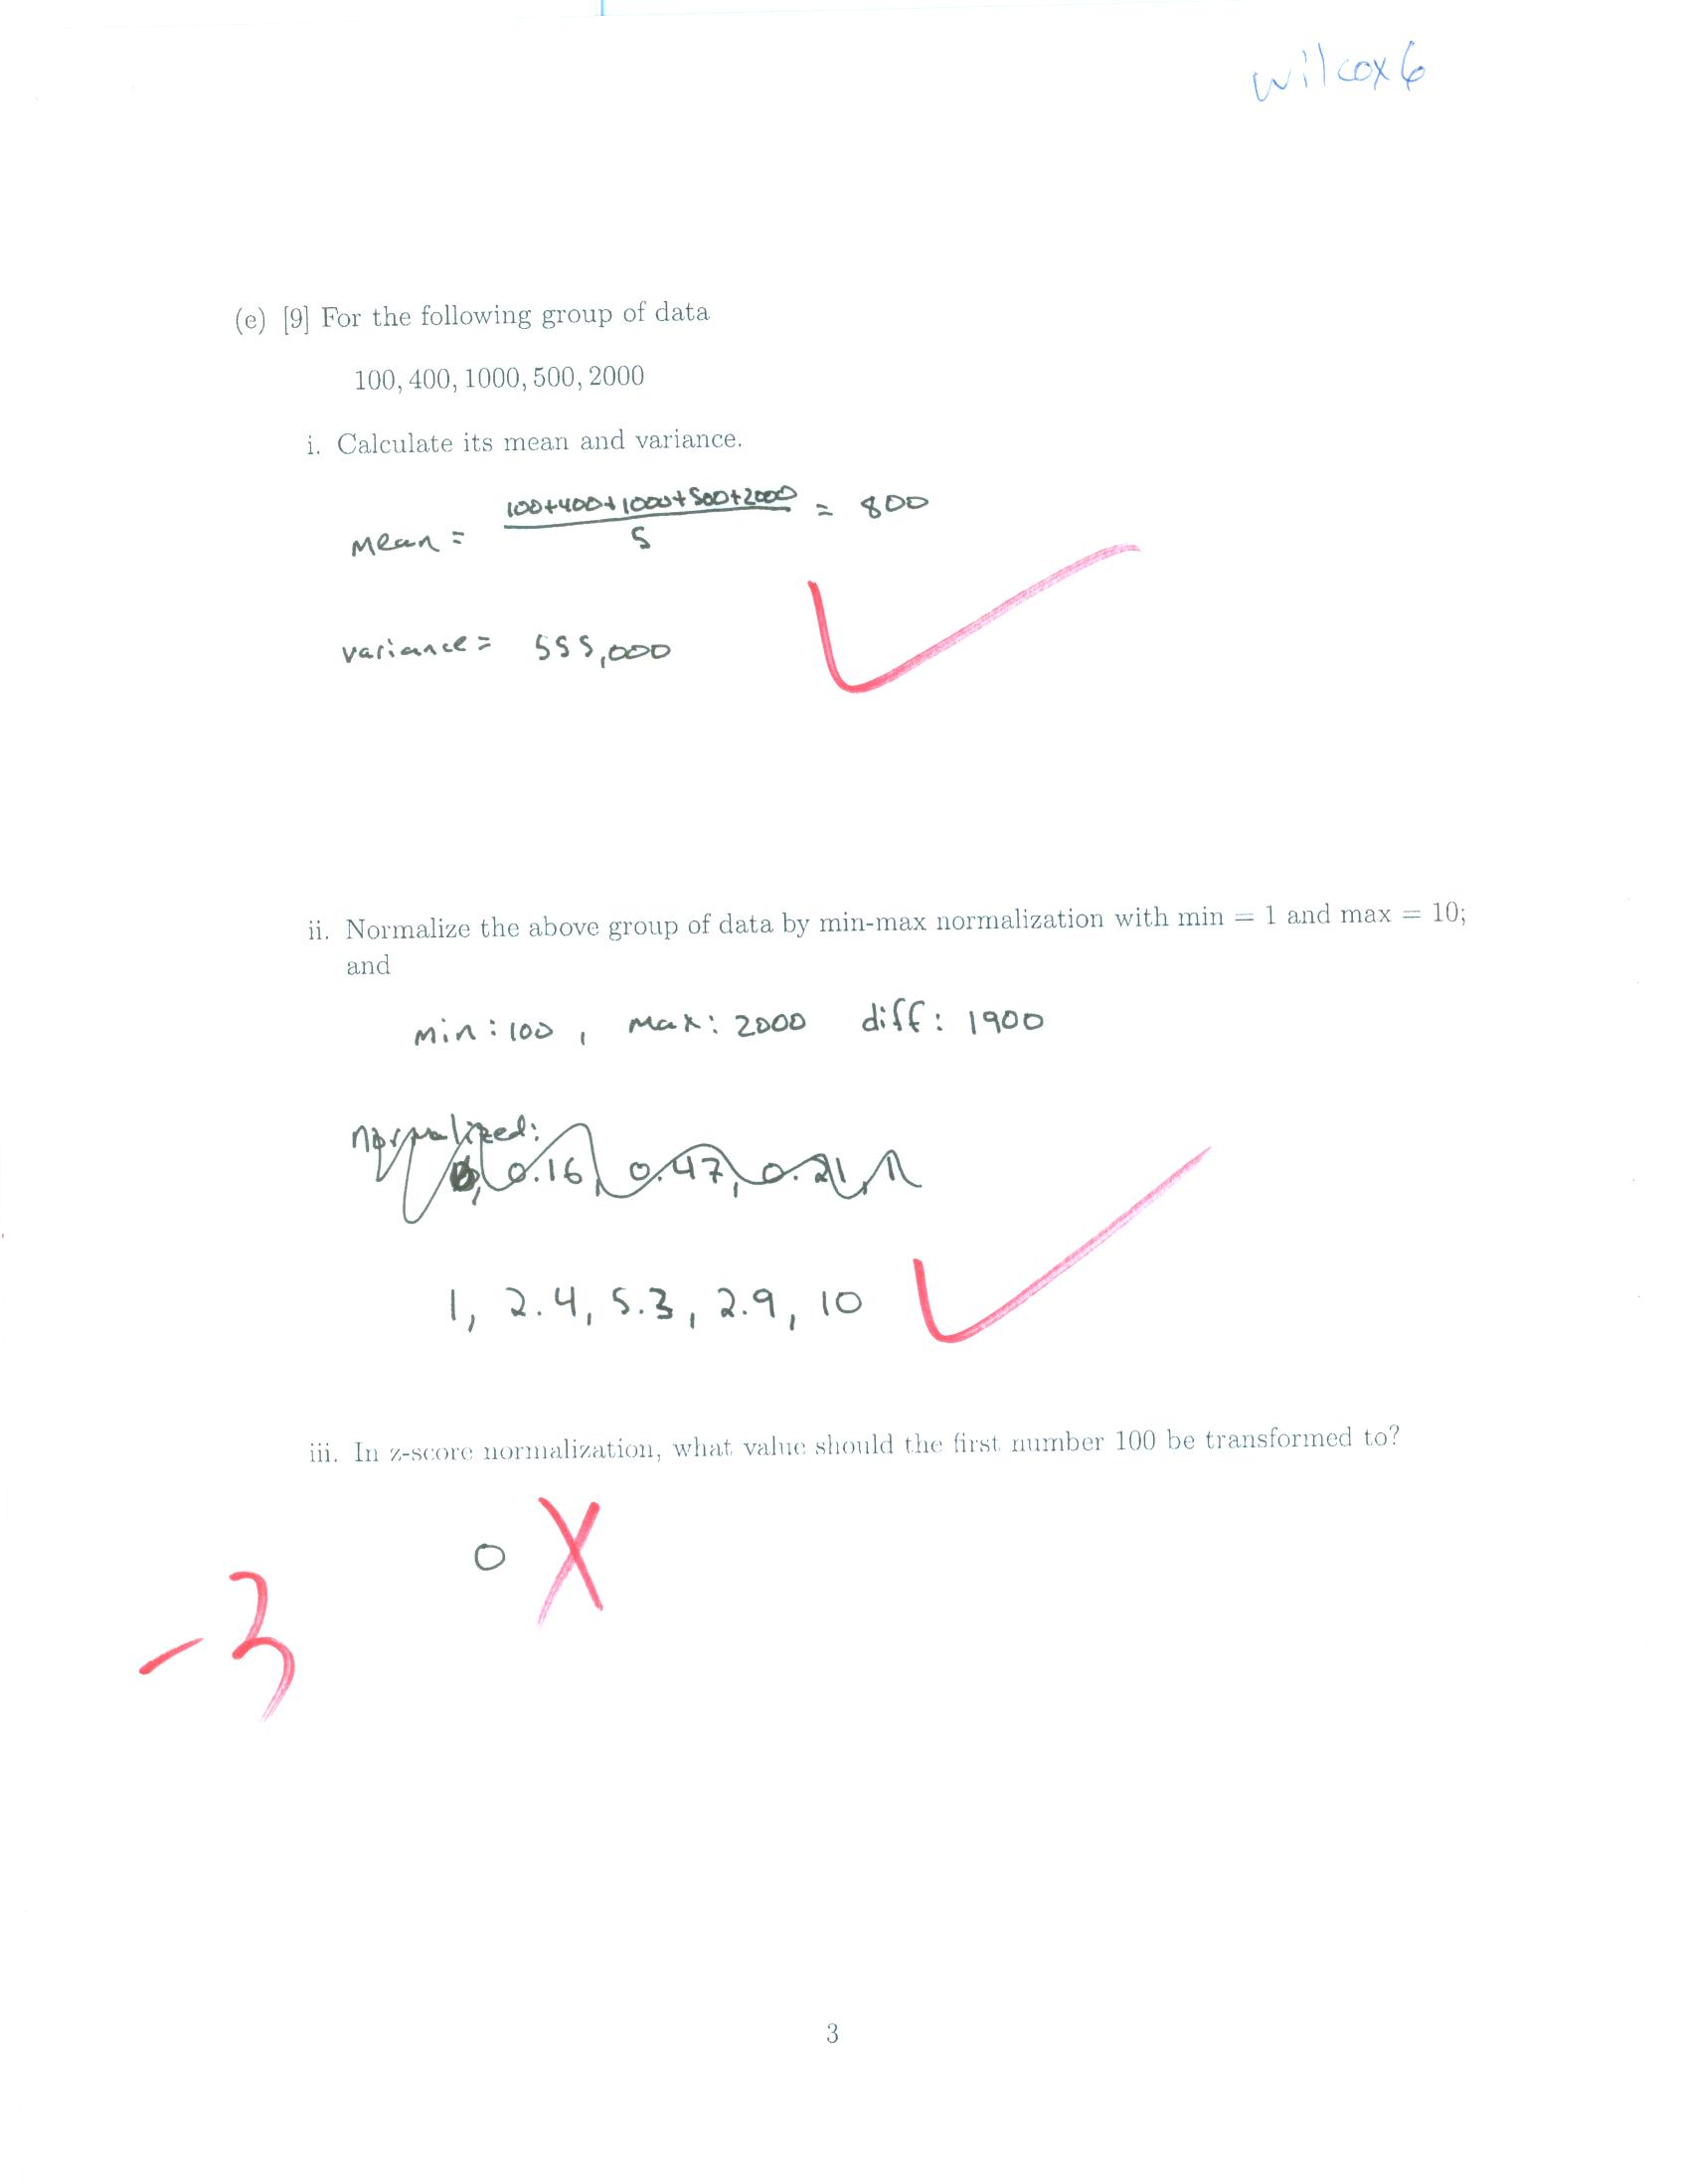 wilcox6
(e) [9] For the following group of data
100, 400, 1000, 500, 2000
i. Calculate its mean and variance.
mean = 100+400+1000+500+2000 / 5 = 800
variance = 555,000
ii. Normalize the above group of data by min-max normalization with min = 1 and max = 10;
and
min: 100, max: 2000 diff: 1900
normalized:
0, 0.16, 0.47, 0.21, 1
1, 2.4, 5.3, 2.9, 10
iii. In z-score normalization, what value should the first number 100 be transformed to?
0 X
-3
3